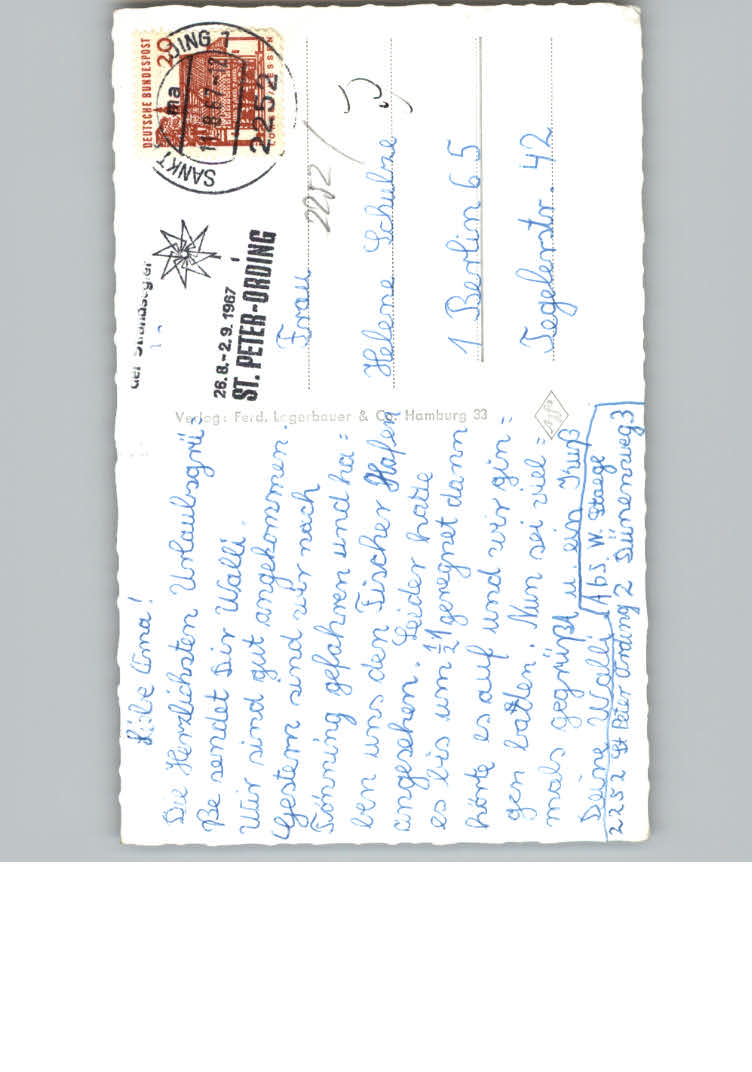 Liebe Oma!
Die Herzlichsten Urlaubsgrü=
ße sendet Dir Walli.
Wir sind gut angekommen.
Gestern sind wir nach
Tönning gefahren und ha=
ben uns den Fischer Hafen
angesehen. Leider hatte
es bis um ½1 geregnet dann
hörte es auf und wir gin=
gen batten. Nun sei viel=
mals gegrüßt u. ein Kuß
Deine Walli
Abs W. Staege
2252 St Peter Ording 2 Dünenweg 3
Verlag: Ferd. Lagerbauer & Co, Hamburg 33
DEUTSCHE BUNDESPOST
20
SANKT
DING 1
ma
2252
26.8.-2.9.1967
ST. PETER-ORDING
2252
Frau
Helene Schulze
1 Berlin 65
Tegelerstr. 42